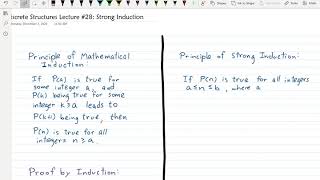 iscrete Structures Lecture #28: Strong Induction
Principle of Mathematical
Induction:
If P(a) is true for
some integer a, and
P(k) being true for some
integer k ≥ a leads to
P(k+1) being true, then
P(n) is true for all
integers n ≥ a.
Proof by Induction:
Principle of Strong Induction:
If P(n) is true for all integers
a ≤ n ≤ b, where a